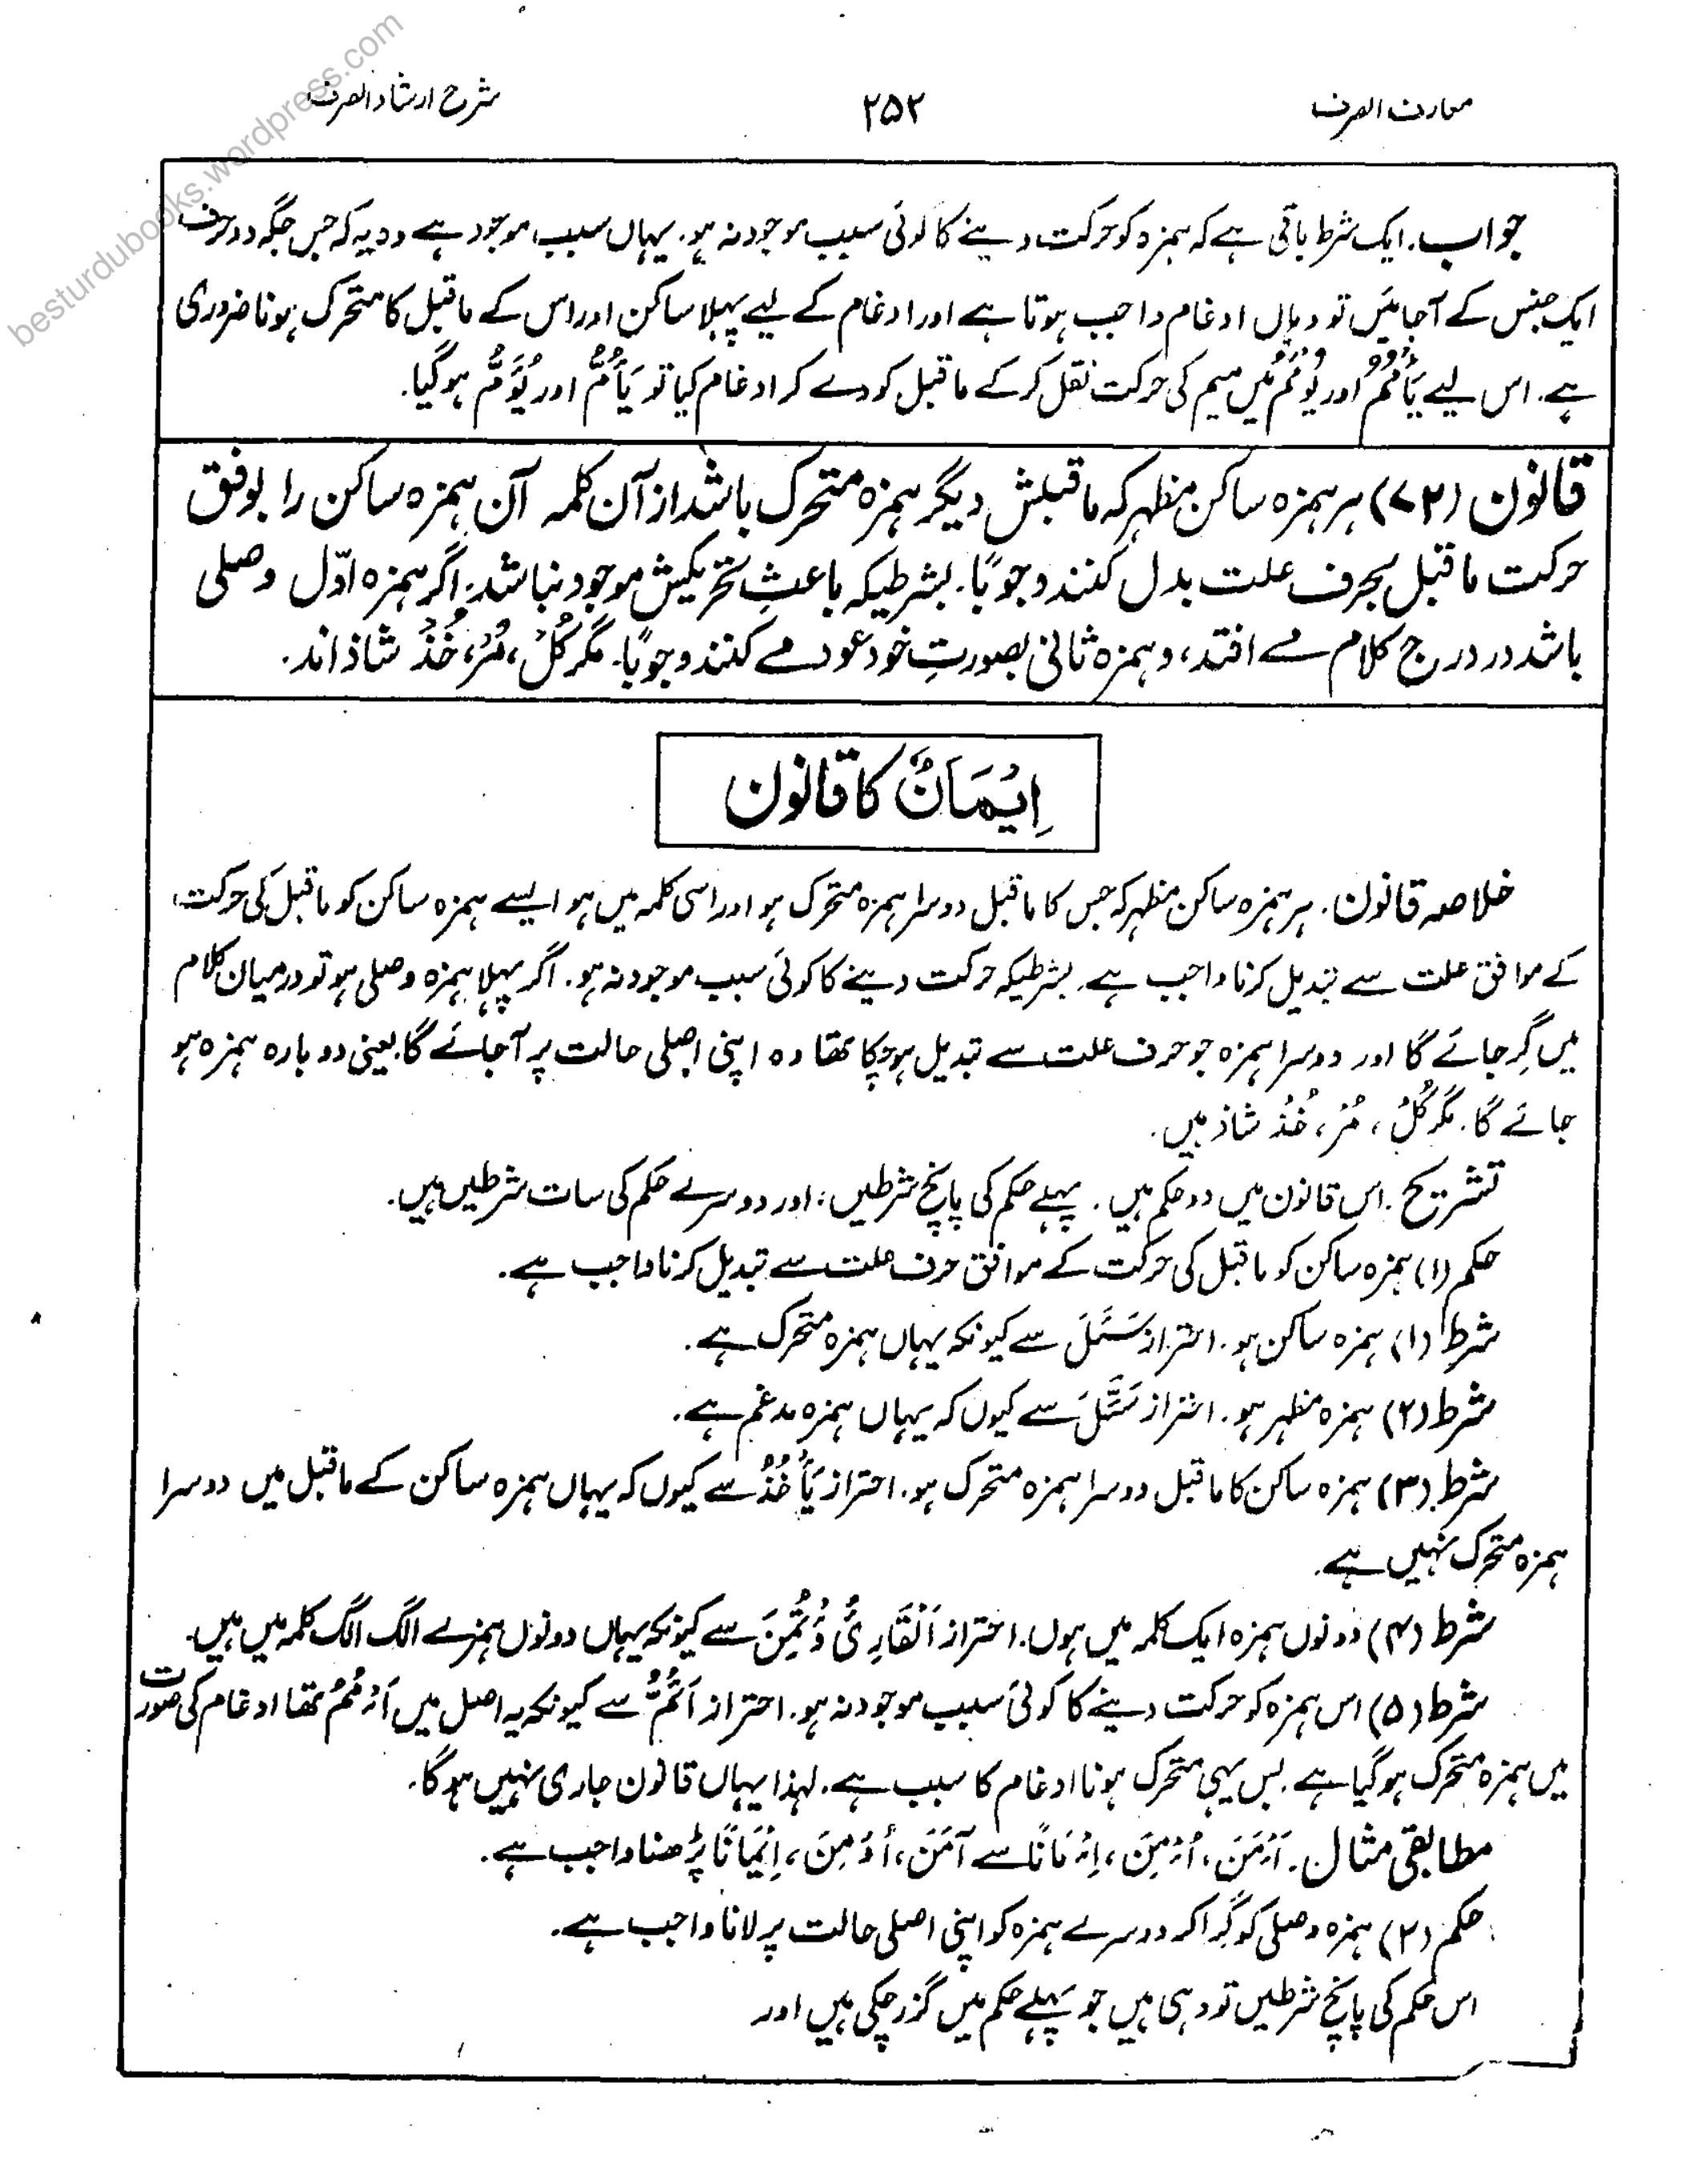 besturdubooks.wordpress.com
معارف الصرف ۲۵۲ شرح ارشاد الصرف
جواب. ایک شرط باقی ہے کہ ہمزہ کو حرکت دینے کا کوئی سبب موجود نہ ہو. یہاں سبب موجود ہے وہ یہ کہ جس جگہ دو حرف
ایک جنس کے آجائیں تو وہاں ادغام واجب ہوتا ہے اور ادغام کے لیے پہلا ساکن اور اس کے ماقبل کا متحرک ہونا ضروری
ہے. اس لیے یَأْمُمُ اور یُوْمَمُ میں میم کی حرکت نقل کر کے ماقبل کو دے کر ادغام کیا تو یَأُمُّ اور یُؤَمُّ ہو گیا.
قانون (۷۲) ہر ہمزہ ساکن مظہر کہ ماقبلش دیگر ہمزہ متحرک باشد از آن کلمہ آن ہمزہ ساکن را بوفق
حرکت ماقبل بحرف علت بدل کنند وجوبًا. بشرطیکہ باعثِ تحریکش موجود نباشد. اگر ہمزہ اوّل وصلی
باشد در درج کلام مے افتد، و ہمزہ ثانی بصورتِ خود عود مے کنند وجوبًا۔ مگر کُلْ، مُرْ، خُذْ شاذ اند.
اِیْمَانٌ کا قانون
خلاصہ قانون. ہر ہمزہ ساکن مظہر کہ جس کا ماقبل دوسرا ہمزہ متحرک ہو اور اسی کلمہ میں ہو ایسے ہمزہ ساکن کو ماقبل کی حرکت
کے موافق علت سے تبدیل کرنا واجب ہے. بشرطیکہ حرکت دینے کا کوئی سبب موجود نہ ہو. اگر پہلا ہمزہ وصلی ہو تو درمیان کلام
میں گِر جائے گا اور دوسرا ہمزہ جو حرف علت سے تبدیل ہو چکا تھا وہ اپنی اصلی حالت پر آجائے گا. یعنی دوبارہ ہمزہ ہو
جائے گا. مگر کُلْ، مُرْ، خُذْ شاذ ہیں.
تشریح. اس قانون میں دو حکم ہیں. پہلے حکم کی پانچ شرطیں، اور دوسرے حکم کی سات شرطیں ہیں.
حکم (۱) ہمزہ ساکن کو ماقبل کی حرکت کے موافق حرف علت سے تبدیل کرنا واجب ہے.
شرط (۱) ہمزہ ساکن ہو. احتراز سَئَلَ سے کیونکہ یہاں ہمزہ متحرک ہے.
شرط (۲) ہمزہ مظہر ہو. احتراز سَئَّلَ سے کیوں کہ یہاں ہمزہ مدغم ہے.
شرط (۳) ہمزہ ساکن کا ماقبل دوسرا ہمزہ متحرک ہو. احتراز یَأْخُذُ سے کیوں کہ یہاں ہمزہ ساکن کے ماقبل میں دوسرا
ہمزہ متحرک نہیں ہے.
شرط (۴) دونوں ہمزہ ایک کلمہ میں ہوں. احتراز اَلْقَارِئُ ؤْتُمِنَ سے کیونکہ یہاں دونوں ہمزے الگ الگ کلمہ میں ہیں.
شرط (۵) اس ہمزہ کو حرکت دینے کا کوئی سبب موجود نہ ہو. احتراز اَئُمُّ سے کیونکہ یہ اصل میں اَءْمُمُ تھا ادغام کی صورت
میں ہمزہ متحرک ہو گیا ہے. بس یہی متحرک ہونا ادغام کا سبب ہے. لہذا یہاں قانون جاری نہیں ہو گا.
مطابقی مثال. اَءْمَنَ، اُءْمِنَ، اِءْمَانًا سے آمَنَ، اُوْمِنَ، اِیْمَانًا پڑھنا واجب ہے.
حکم (۲) ہمزہ وصلی کو گرا کر دوسرے ہمزہ کو اپنی اصلی حالت پر لانا واجب ہے.
اس حکم کی پانچ شرطیں تو وہی ہیں جو پہلے حکم میں گزر چکی ہیں اور